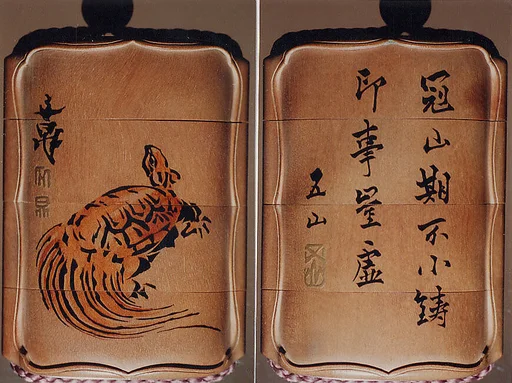 冠山期不小鋳
印事豈虚
五山